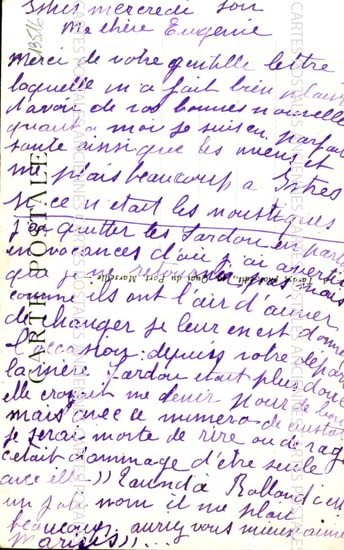 Istres mercredi soir
Ma chère Eugénie
Merci de votre gentille lettre
laquelle m'a fait bien plaisir
d'avoir de vos bonnes nouvelles
quant a moi je suis en parfaite
santé ainsi que les miens et
me plais beaucoup a Istres
si ce n'était les moustiques
j'ai quitter les Sardou en part
en vacances d'où j'ai averti
que je mais
comme ils ont l'air d'aimer
de changer je leur en est donné
l'occasion. depuis votre départ
la mère Sardou était plus douce
elle croyait me tenir pour de bon
mais avec ce numéro de
je serai morte de rire ou de rage
c'était dommage d'être seule
avec elle)) Rolland c'est
un joli nom il me plait
beaucoup, auriez vous mieux aimé
Marius)) ...
CARTE POSTALE
Quai du Port, Marseille
CARTES POSTALES ANCIENNES